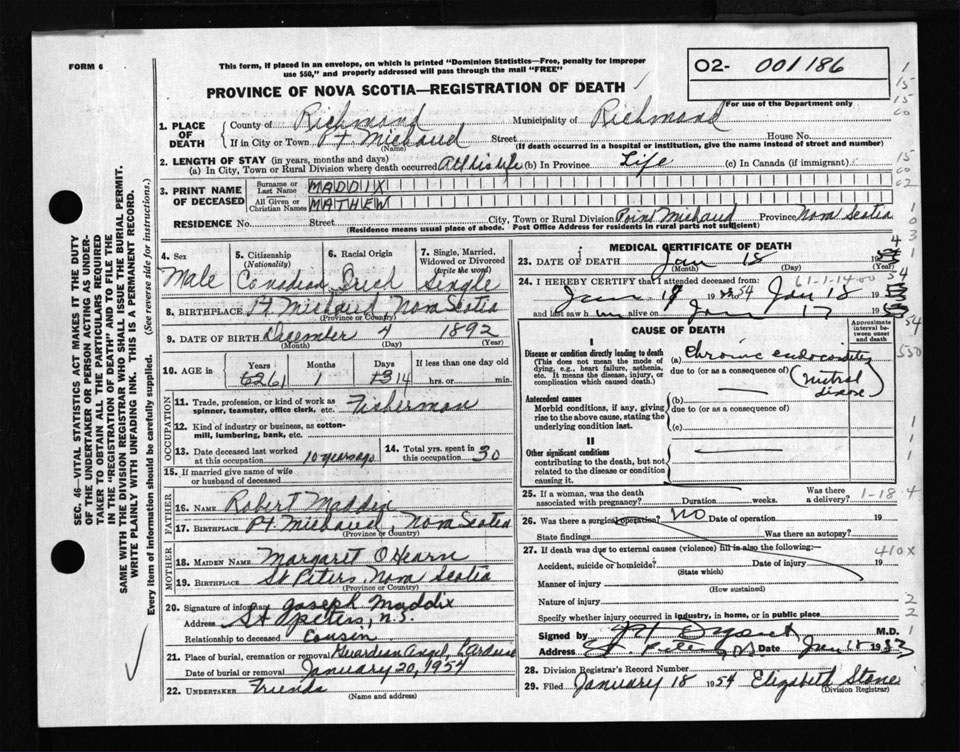 FORM 6
This form, if placed in an envelope, on which is printed "Dominion Statistics—Free, penalty for improper
use $50," and properly addressed will pass through the mail "FREE"
PROVINCE OF NOVA SCOTIA—REGISTRATION OF DEATH
02- 001186
For use of the Department only
1. PLACE OF DEATH
County of Richmond Municipality of Richmond
If in City or Town Pt Michaud Street House No.
(Name) (If death occurred in a hospital or institution, give the name instead of street and number)
2. LENGTH OF STAY (in years, months and days)
(a) In City, Town or Rural Division where death occurred All his life (b) In Province Life (c) In Canada (if immigrant)
3. PRINT NAME OF DECEASED
Surname or Last Name MADDIX
All Given or Christian Names MATHEW
RESIDENCE No. Street City, Town or Rural Division Point Michaud Province Nova Scotia
(Residence means usual place of abode. Post Office Address for residents in rural parts not sufficient)
4. Sex Male
5. Citizenship (Nationality) Canadian
6. Racial Origin Irich
7. Single, Married, Widowed or Divorced (write the word) Single
8. BIRTHPLACE Pt Michaud Nova Scotia
(Province or Country)
9. DATE OF BIRTH December 4 1892
(Month) (Day) (Year)
10. AGE in Years 61 Months 1 Days 14 If less than one day old
hrs. or min.
OCCUPATION
11. Trade, profession, or kind of work as
spinner, teamster, office clerk, etc. Fisherman
12. Kind of industry or business, as cotton-
mill, lumbering, bank, etc.
13. Date deceased last worked
at this occupation 10 years ago
14. Total yrs. spent in
this occupation 30
15. If married give name of wife
or husband of deceased
FATHER
16. NAME Robert Maddix
17. BIRTHPLACE Pt Michaud, Nova Scotia
(Province or Country)
MOTHER
18. MAIDEN NAME Margaret O'Hearn
19. BIRTHPLACE St Peters Nova Scotia
(Province or Country)
20. Signature of informant Joseph Maddix
Address St Peters, N.S.
Relationship to deceased Cousin
21. Place of burial, cremation or removal Guardian Angel, L'Ardoise
Date of burial or removal January 20, 1954
22. UNDERTAKER Friends
(Name and address)
MEDICAL CERTIFICATE OF DEATH
23. DATE OF DEATH Jan 18 19
(Month) (Day) (Year)
24. I HEREBY CERTIFY that I attended deceased from:
61-1-14-00
Jan 19 to Jan 18 19
and last saw h im alive on Jan 17 19
CAUSE OF DEATH
Approximate interval between onset and death
I
Disease or condition directly leading to death
(This does not mean the mode of
dying, e.g., heart failure, asthenia,
etc. It means the disease, injury, or
complication which caused death.)
(a) Chronic endocarditis
due to (or as a consequence of)
Antecedent causes
Morbid conditions, if any, giving
rise to the above cause, stating the
underlying condition last.
(b)
due to (or as a consequence of)
(c)
II
Other significant conditions
contributing to the death, but not
related to the disease or condition
causing it.
25. If a woman, was the death
associated with pregnancy? Duration weeks. Was there a delivery?
1-18-4
26. Was there a surgical operation? NO Date of operation 19
State findings Was there an autopsy?
27. If death was due to external causes (violence) fill in also the following:—
410X
Accident, suicide or homicide? Date of injury 19
(State which)
Manner of injury
(How sustained)
Nature of injury
Specify whether injury occurred in industry, in home, or in public place
Signed by M.D.
Address St. Peters NS Date Jan 18 19
28. Division Registrar's Record Number
29. Filed January 18 1954 Elizabeth Stone
(Division Registrar)
SEC. 46—VITAL STATISTICS ACT MAKES IT THE DUTY
OF THE UNDERTAKER OR PERSON ACTING AS UNDER-
TAKER TO OBTAIN ALL THE PARTICULARS REQUIRED
IN THE "REGISTRATION OF DEATH" AND TO FILE THE
SAME WITH THE DIVISION REGISTRAR WHO SHALL ISSUE THE BURIAL PERMIT.
WRITE PLAINLY WITH UNFADING INK. THIS IS A PERMANENT RECORD.
Every item of information should be carefully supplied. (See reverse side for instructions.)